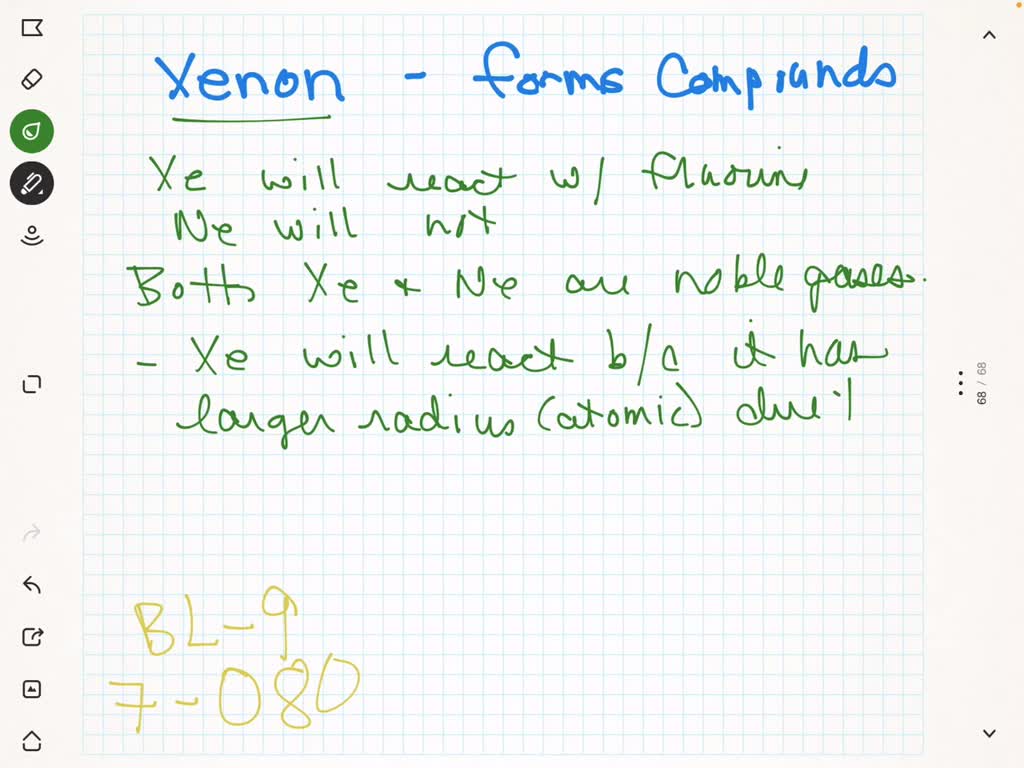 Xenon - forms Compounds
Xe will react w/ fluorine
Ne will not
Both Xe + Ne are noble gases.
- Xe will react b/c it has
larger radius (atomic) due
BL-9
7-080
68 / 68